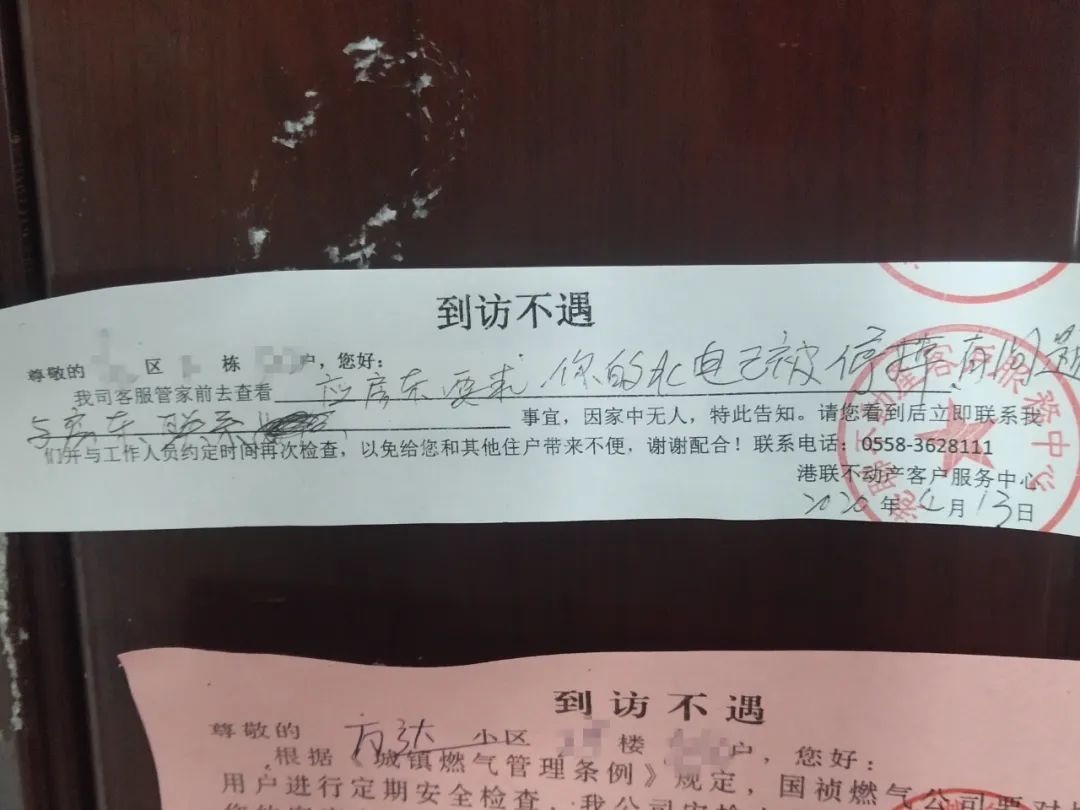 到访不遇
尊敬的 区 栋 户，您好：
我司客服管家前去查看 应房东要求，你的水电已被停掉，有问题
与房东联系 事宜，因家中无人，特此告知。请您看到后立即联系我
们并与工作人员约定时间再次检查，以免给您和其他住户带来不便，谢谢配合！联系电话：0558-3628111
港联不动产客户服务中心
2020年4月13日
到访不遇
尊敬的 万达 小区 楼 户，您好：
根据《城镇燃气管理条例》规定，国祯燃气公司要对
用户进行定期安全检查，我公司安检